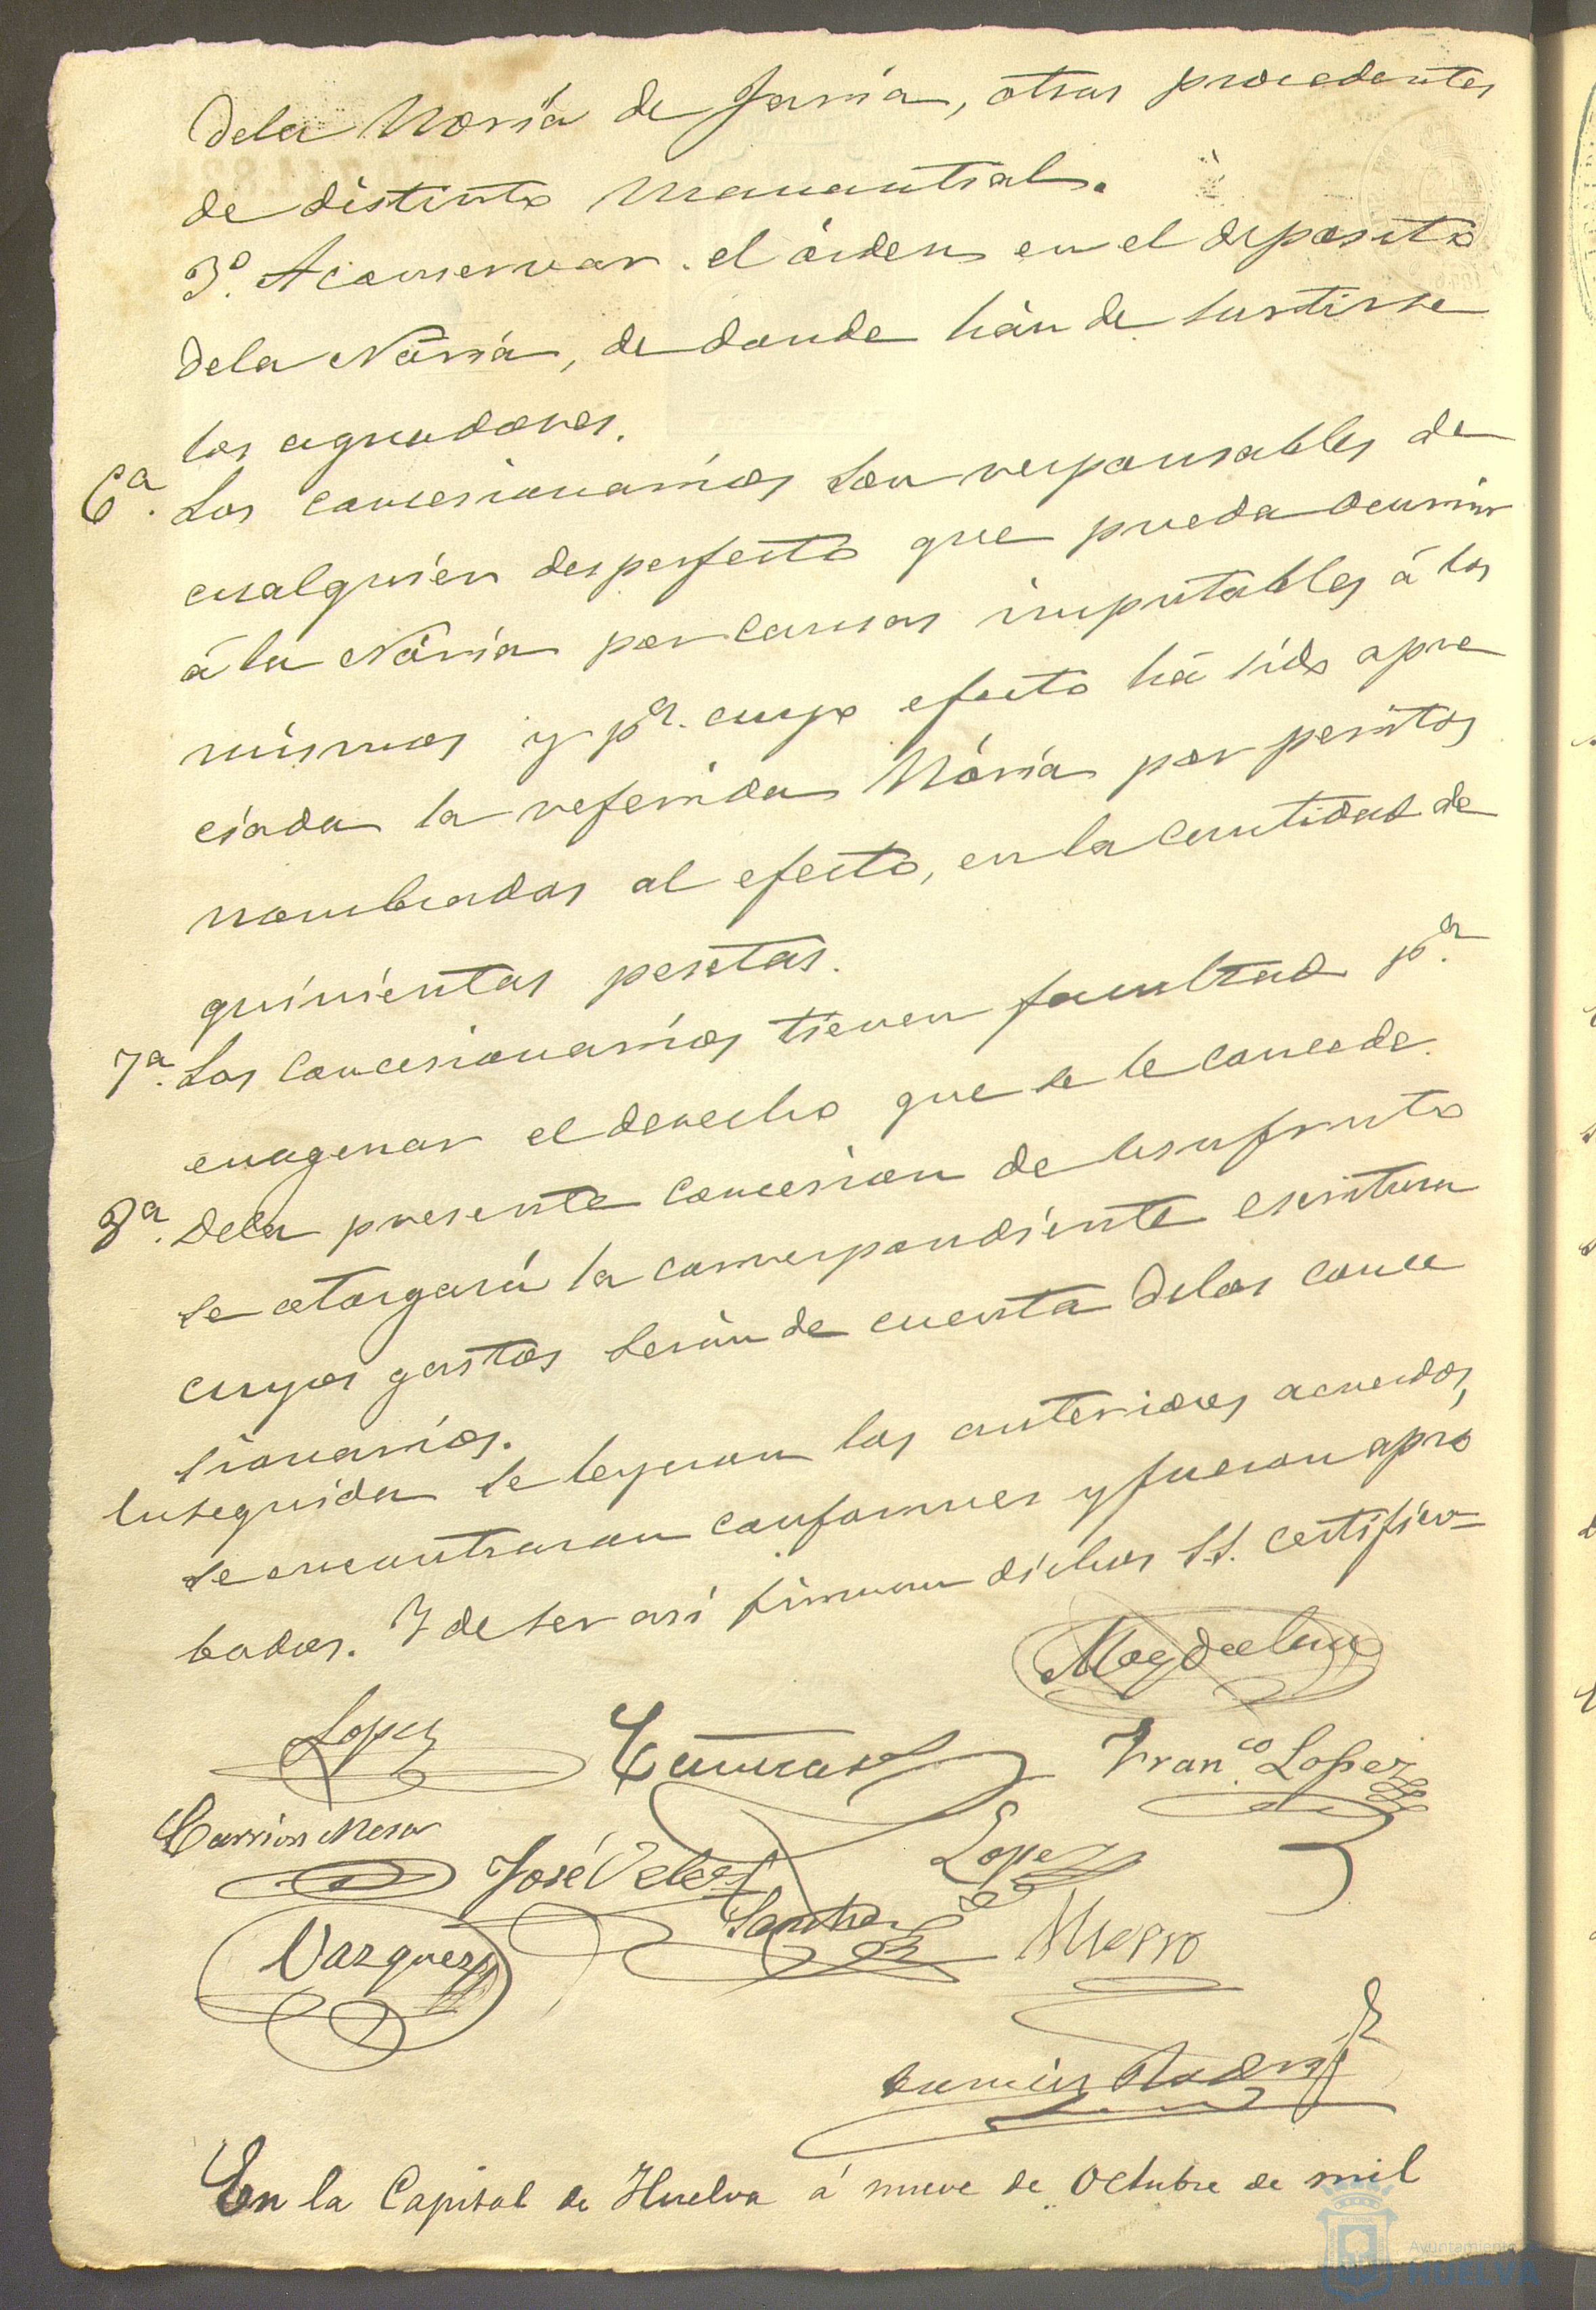 dela Noria de Jarria, otras procedentes
de distinto manantial.
3º. A conservar el órden en el deposito
dela Nória, de donde hán de surtirse
los aguadores.
6ª. Los concesionarios son responsables de
cualquier desperfecto que pueda ocurrir
á la Nória por causas imputables á los
mismos y pª. cuyo efecto há sido apre
ciada la referida Nória por peritos
nombrados al efecto, en la cantidad de
quinientas pesetas.
7ª. Los concesionarios tienen facultad pª.
enagenar el derecho que se le concede.
8ª. Dela presente concesion de usufructo
se otorgará la correspondiente escritura
cuyos gastos serán de cuenta delos conce
sionarios.
Enseguida se leyeron los anteriores acuerdos,
se encontraron conformes y fueron apro
bados. Y de ser así firman dichos SS. certifico=
Magdalena
Lopez
Franco. Lopez
Carrion Mesa
José Velez
Lopez
Sanchez
Vazquez
En la Capital de Huelva á nueve de Octubre de mil
Ayuntamiento
HUELVA